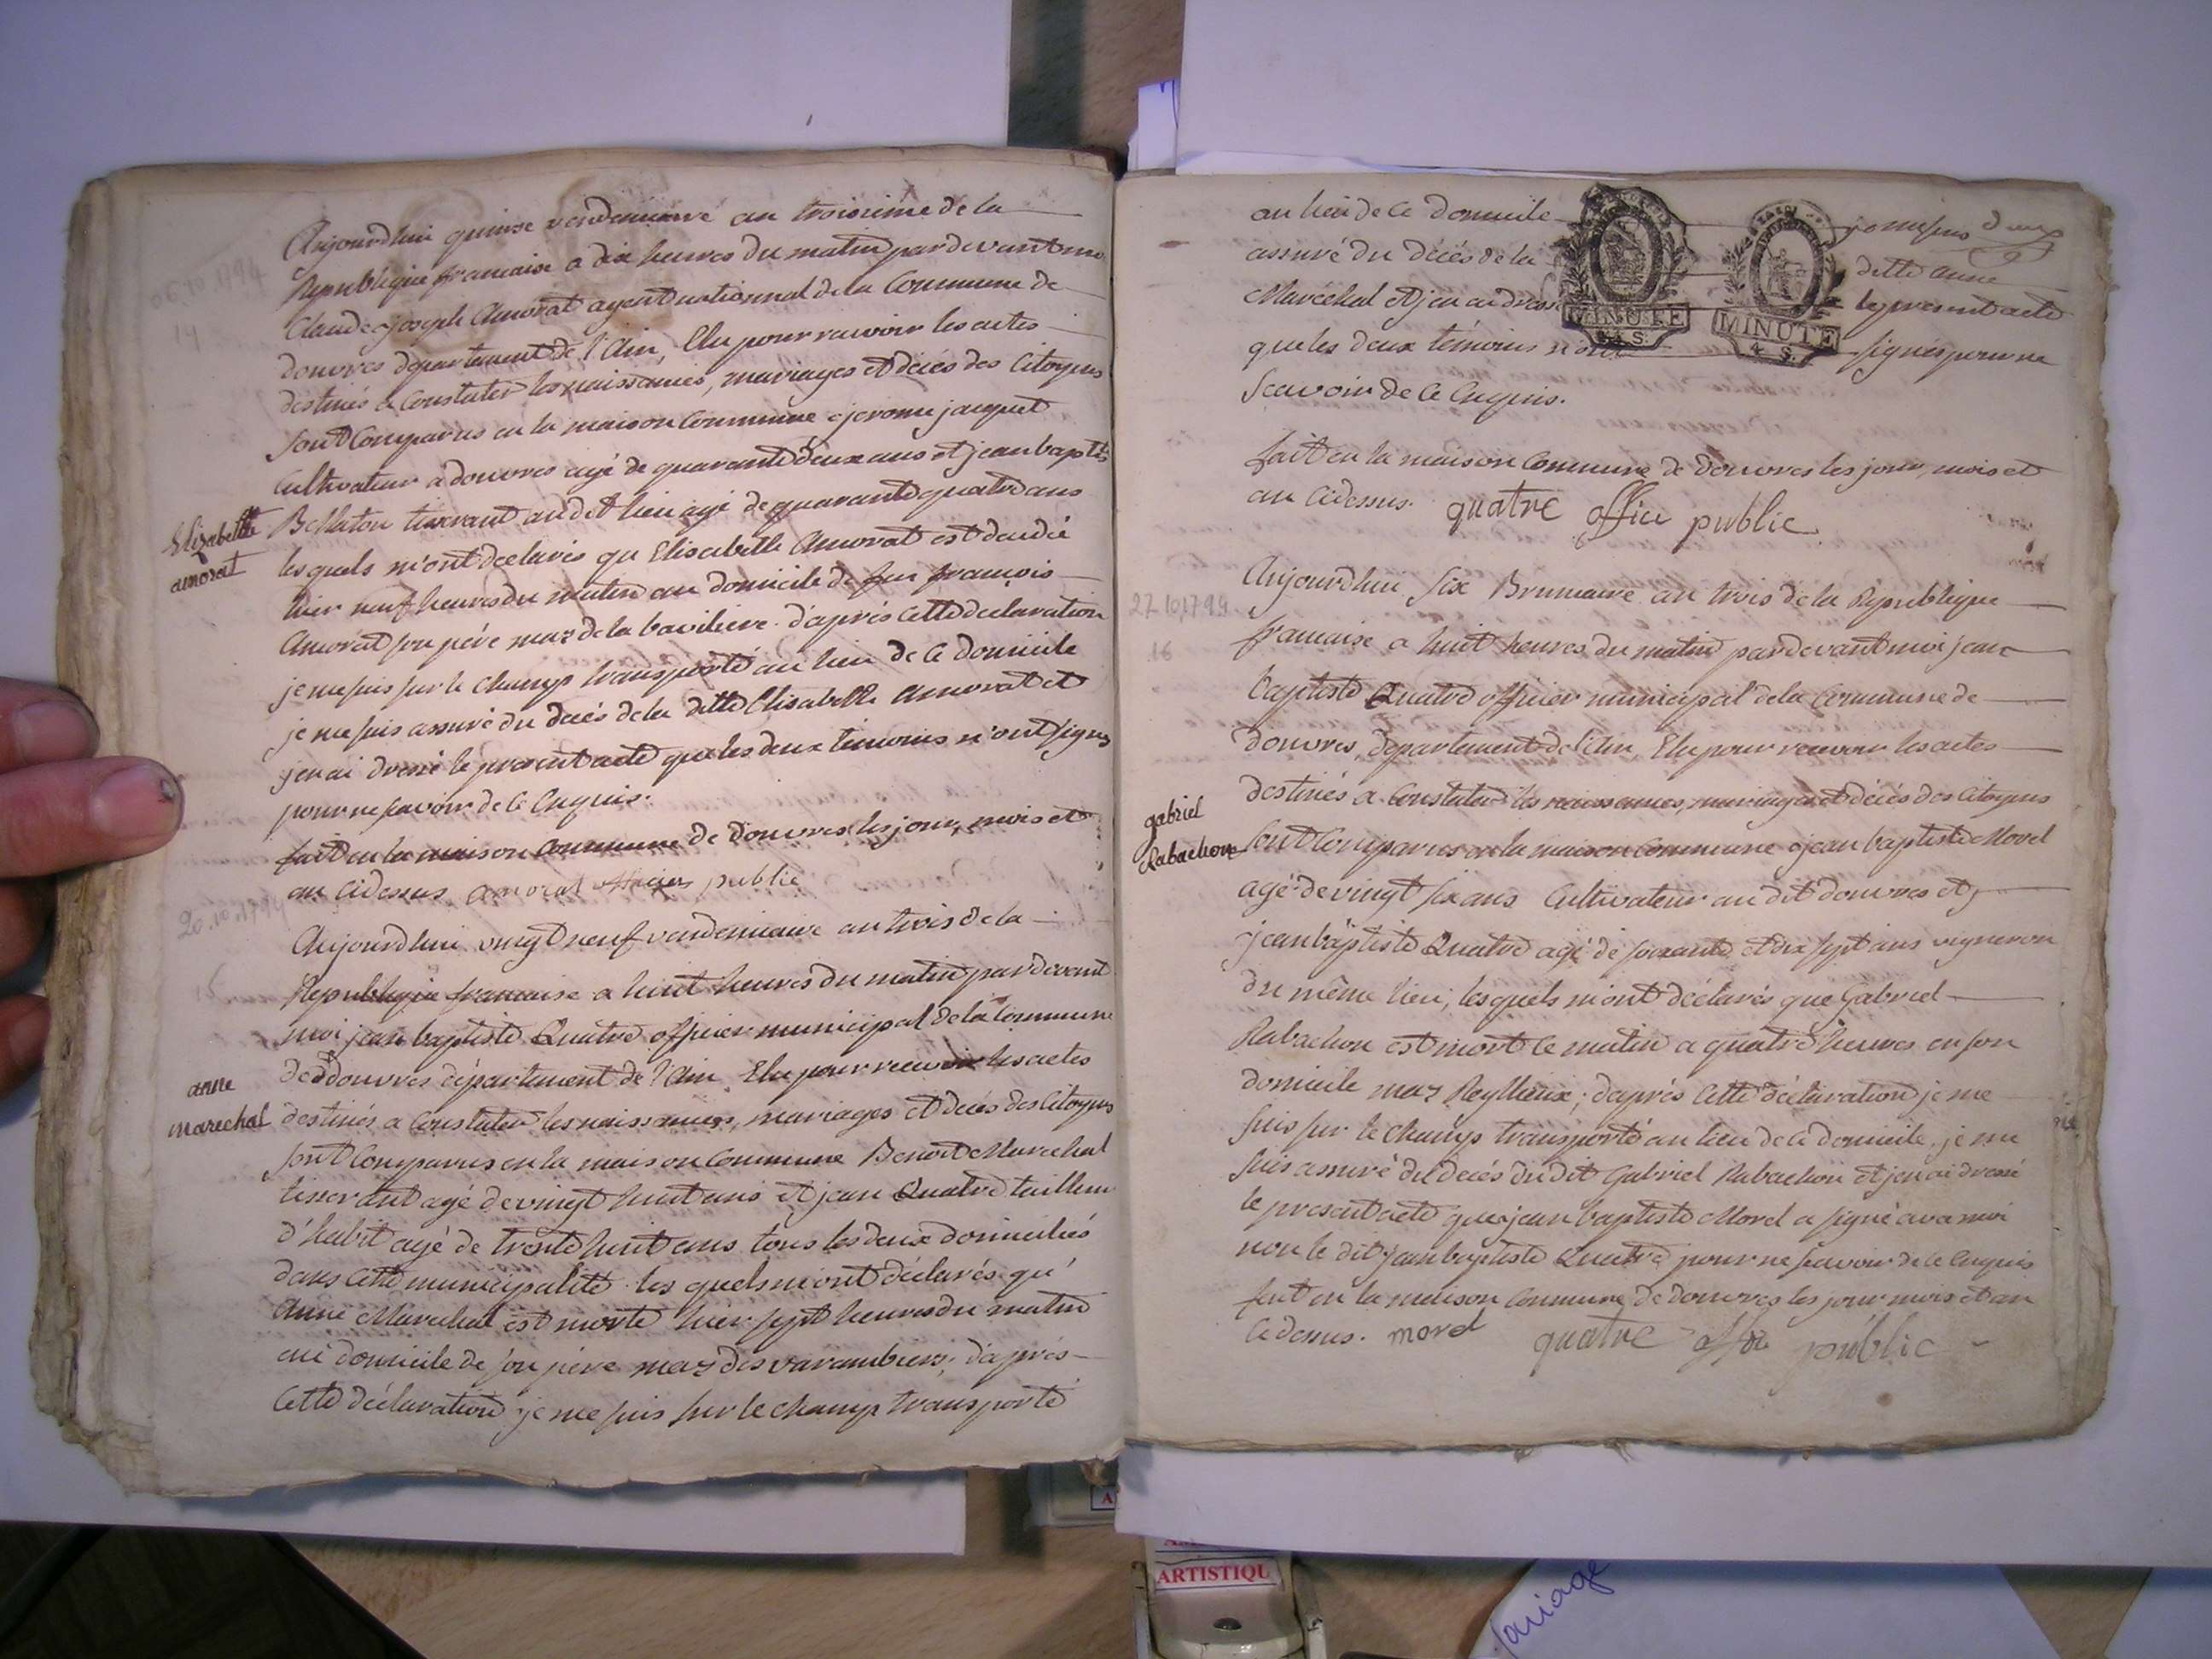 Aujourdhui quinse vendemiaire an troisième de la
Republique francaise a dix heures du matin pardevant moi
Claude joseph Amorat agent nationnal de la Commune de
douvres departement de l'Ain, Elu pour recevoir les actes
destinés a Constater les naissances, mariages et décés des Citoyens
sont Comparus en la maison Commune jerome jacquet
Cultivateur a douvres agé de quarante deux ans et jean baptte
Bellaton tisserant audit lieu agé de quarante quatre ans
Elizabette
amorat
les quels m'ont declarés qu Elisabette Amorat est décédé
hier neuf heures du matin au domicile de feu francois
Amorat son père maz de la baviliere d'après cette declaration
je me suis sur le champ transporté au lieu de ce domicile
je me suis assuré du décés de la ditte Elisabette Amorat et
jen ai dressé le present acte que les deux témoins n'ont signés
pour ne savoir de ce Enquis.
fait en la maison Commune de douvres les jour, mois et
an cidessus amorat officier public
20.10.1794
Aujourdhui vingt neuf vendemiaire an trois de la
Republique francaise a huit heures du matin pardevant
moi jean baptiste Quatre officier municipal de la Commune
de douvres département de l'Ain Elu pour recevoir les actes
anne
marechal
destinés a Constater les naissances, mariages et décés des Citoyens
sont Comparus en la maison Commune Benoit Marechal
tisserant agé de vingt huit ans et jean Quatre tailleur
d'habit agé de trente huit ans tous les deux domiciliés
dans cette municipalité les quels m'ont déclarés qu'
Anne Marechal est morte hier sept heures du matin
au domicile de son père maz des varambiers; d'après
Cette déclaration je me suis sur le champ transporté
au lieu de ce domicile je me suis
assuré du décés de la ditte anne
Maréchal et jen ai dressé le present acte
MINUTE
4 S.
MINUTE
4 S.
que les deux témoins n'ont signés pour ne
scavoir de ce Enquis.
fait en la maison Commune de douvres les jour, mois et
an cidessus. quatre officie public
27.10.1799
16
Aujourdhui six Brumaire an trois de la Republique
francaise a huit heures du matin pardevant moi jean
baptiste Quatre officier municipal de la Commune de
douvres, departement de l'Ain, Elu pour recevoir les actes
destinés a Constater les naissances, mariages et décés des Citoyens
gabriel
Rabachon
sont Comparus en la maison Commune jean baptiste Morel
agé de vingt six ans Cultivateur au dit douvres et
jean baptiste Quatre agé de soixante et dix sept ans vigneron
du même lieu, lesquels m'ont déclarés que Gabriel
Rabachon est mort ce matin a quatre heures en son
domicile maz Reyllieux; d'après cette déclaration je me
suis sur le champ transporté au lieu de ce domicile, je me
suis assuré du décés du dit Gabriel Rabachon et jen ai dressé
le present acte que jean baptiste Morel a signé avec moi
non le dit jean baptiste Quatre pour ne scavoir de ce Enquis
fait en la maison Commune de douvres les jour mois et an
ci dessus. morel quatre offi public
ARTISTIQU
mariage